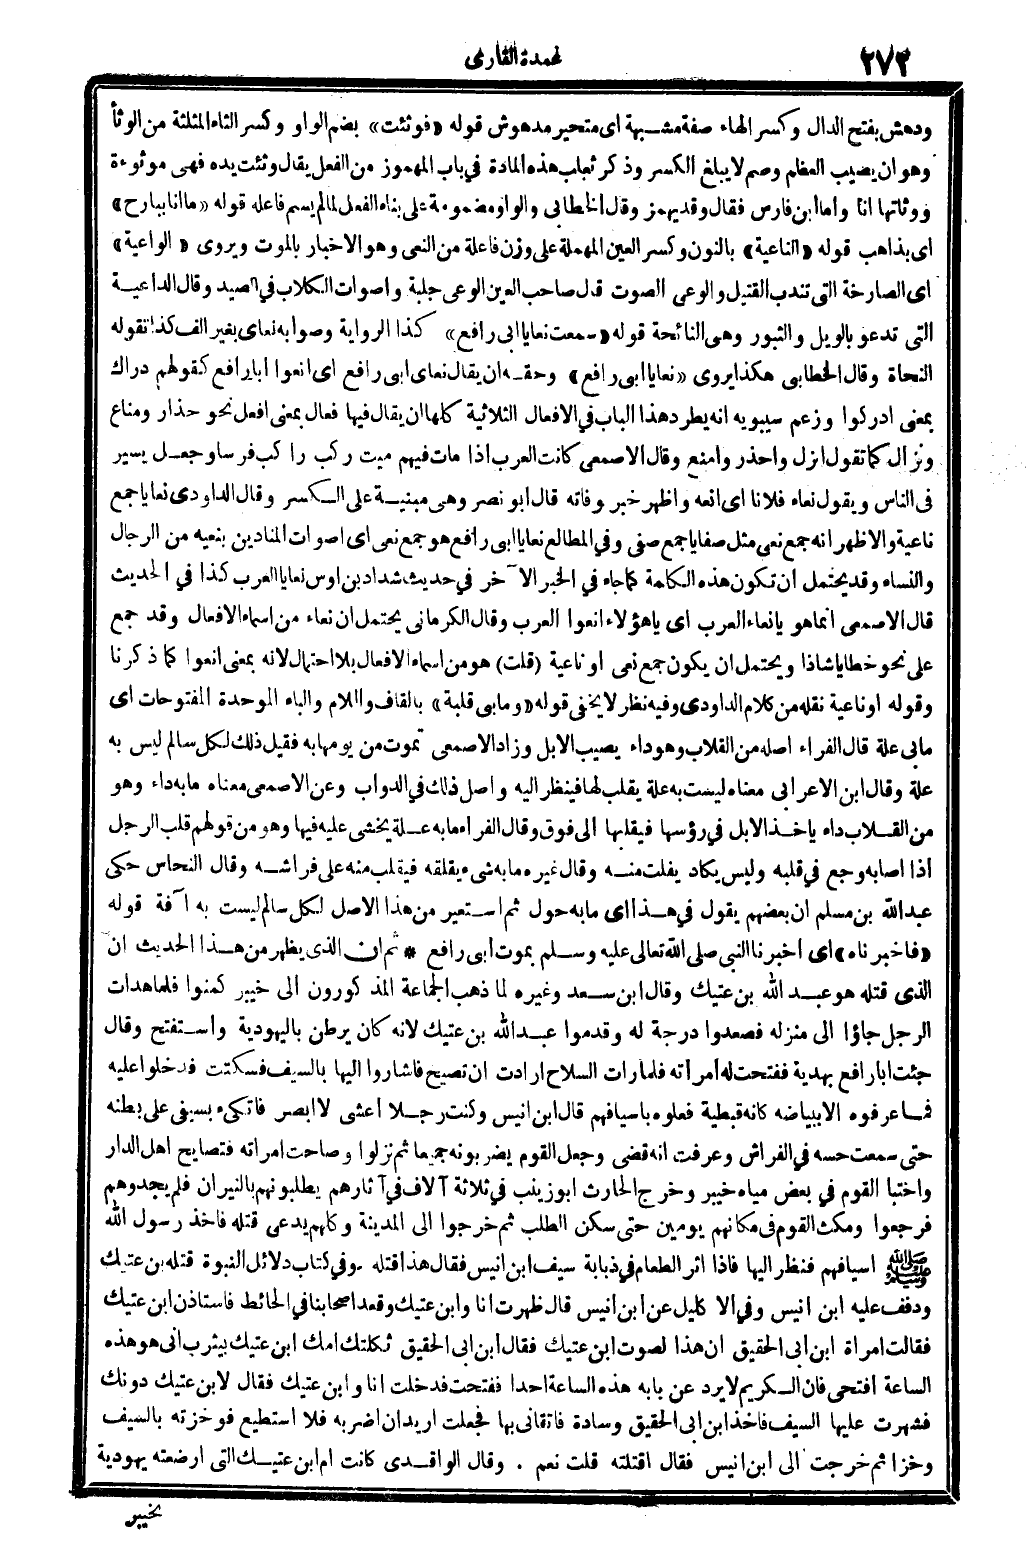 ٢٧٢
عمدة القارى
ودهش بفتح الدال وكسر الهاء صفة مشبهة اى متحير مدهوش قوله «فوثئت» بضم الواو وكسر الثاء المثلثة من الوثأ
وهو ان يصيب العظم وصم لا يبلغ الكسر وذكر ثعلب هذه المادة في باب المهموز من الفعل يقال وثئت يده فهى موثوءة
ووثاتها انا وأما ابن فارس فقال وقد يهمز وقال الخطابى والواو مضمومة على بناء الفعل لما لم يسم فاعله قوله «ما انا ببارح»
اى بذاهب قوله «الناعية» بالنون وكسر العين المهملة على وزن فاعلة من النعى وهو الاخبار بالموت ويروى «الواعية»
اى الصارخة التى تندب القتيل والوعى الصوت قال صاحب العين الوعى جلبة واصوات الكلاب في الصيد وقال الداعية
التى تدعو بالويل والثبور وهى النائحة قوله «سمعت نعايا ابى رافع» كذا الرواية وصوابه نعاى بغير الف كذا تقوله
النحاة وقال الخطابى هكذا يروى «نعايا ابى رافع» وحقه ان يقال نعاى ابى رافع اى انعوا ابا رافع كقولهم دراك
بمعنى ادركوا وزعم سيبويه انه يطرد هذا الباب في الافعال الثلاثية كلها ان يقال فيها فعال بمعنى افعل نحو حذار ومناع
ونزال كما تقول انزل واحذر وامنع وقال الاصمعى كانت العرب اذا مات فيهم ميت ركب راكب فرسا وجعل يسير
فى الناس ويقول نعاء فلانا اى انعه واظهر خبر وفاته قال ابو نصر وهى مبنية على الكسر وقال الداودى نعايا جمع
ناعية والاظهر انه جمع نعى مثل صفايا جمع صفى وفي المطالع نعايا ابى رافع هو جمع نعى اى اصوات المنادين بنعيه من الرجال
والنساء وقد يحتمل ان تكون هذه الكلمة كما جاء في الخبر الآخر في حديث شداد بن اوس نعايا العرب كذا في الحديث
قال الاصمعى انما هو يانعاء العرب اى ياهؤلاء انعوا العرب وقال الكرمانى يحتمل ان نعاء من اسماء الافعال وقد جمع
على نحو خطايا شاذا ويحتمل ان يكون جمع نعى او ناعية (قلت) هو من اسماء الافعال بلا احتمال لانه بمعنى انعوا كما ذكرنا
وقوله او ناعية نقله من كلام الداودى وفيه نظر لا يخفى قوله «وما بى قلبة» بالقاف واللام والباء الموحدة المفتوحات اى
مابى علة قال الفراء اصله من القلاب وهو داء يصيب الابل وزاد الاصمعى تموت من يومها به فقيل ذلك لكل سالم ليس به
علة وقال ابن الاعرابى معناه ليست به علة يقلب لها فينظر اليه واصل ذلك في الدواب وعن الاصمعى معناه مابه داء وهو
من القلاب داء ياخذ الابل في رؤسها فيقلبها الى فوق وقال الفراء مابه علة يخشى عليه فيها وهو من قولهم قلب الرجل
اذا اصابه وجع في قلبه وليس يكاد يفلت منه وقال غيره مابه شىء يقلقه فيتقلب منه على فراشه وقال النحاس حكى
عبدالله بن مسلم ان بعضهم يقول في هذا اى مابه حول ثم استعير من هذا الاصل لكل سالم ليست به آفة قوله
«فاخبرناه» اى أخبرنا النبى صلى الله تعالى عليه وسلم بموت أبى رافع * ثم ان الذى يظهر من هذا الحديث ان
الذى قتله هو عبد الله بن عتيك وقال ابن سعد وغيره لما ذهب الجماعة المذكورون الى خيبر كمنوا فلما هدات
الرجل جاؤا الى منزله فصعدوا درجة له وقدموا عبدالله بن عتيك لانه كان يرطن باليهودية واستفتح وقال
جئت ابا رافع بهدية ففتحت له امرأته فلما رات السلاح ارادت ان تصيح فاشاروا اليها بالسيف فسكتت فدخلوا عليه
فما عرفوه الا ببياضه كانه قبطية فعلوه باسيافهم قال ابن انيس وكنت رجلا اعشى لا ابصر فاتكىء بسيفى على بطنه
حتى سمعت حسه في الفراش وعرفت انه قضى وجعل القوم يضربونه جميعا ثم نزلوا وصاحت امراته فتصايح اهل الدار
واختبا القوم في بعض مياه خيبر وخرج الحارث ابو زينب في ثلاثة آلاف في آثارهم يطلبونهم بالنيران فلم يجدوهم
فرجعوا ومكث القوم فى مكانهم يومين حتى سكن الطلب ثم خرجوا الى المدينة وكلهم يدعى قتله فاخذ رسول الله
ﷺ اسيافهم فنظر اليها فاذا اثر الطعام في ذبابة سيف ابن انيس فقال هذا قتله . وفي كتاب دلائل النبوة قتله بن عتيك
ودفف عليه ابن انيس وفي الاكليل عن ابن انيس قال ظهرت انا وابن عتيك وقعد اصحابنا في الحائط فاستاذن ابن عتيك
فقالت امراة ابن ابى الحقيق ان هذا لصوت ابن عتيك فقال ابن ابى الحقيق ثكلتك امك ابن عتيك بيثرب انى هو هذه
الساعة افتحى فان الكريم لا يرد عن بابه هذه الساعة احدا ففتحت فدخلت انا وابن عتيك فقال لابن عتيك دونك
فشهرت عليها السيف فاخذ ابن ابى الحقيق وسادة فاتقانى بها فجعلت اريد ان اضربه فلا استطيع فوخزته بالسيف
وخزا ثم خرجت الى ابن انيس فقال اقتلته قلت نعم . وقال الواقدى كانت ام ابن عتيك التى ارضعته يهودية
بخيبر